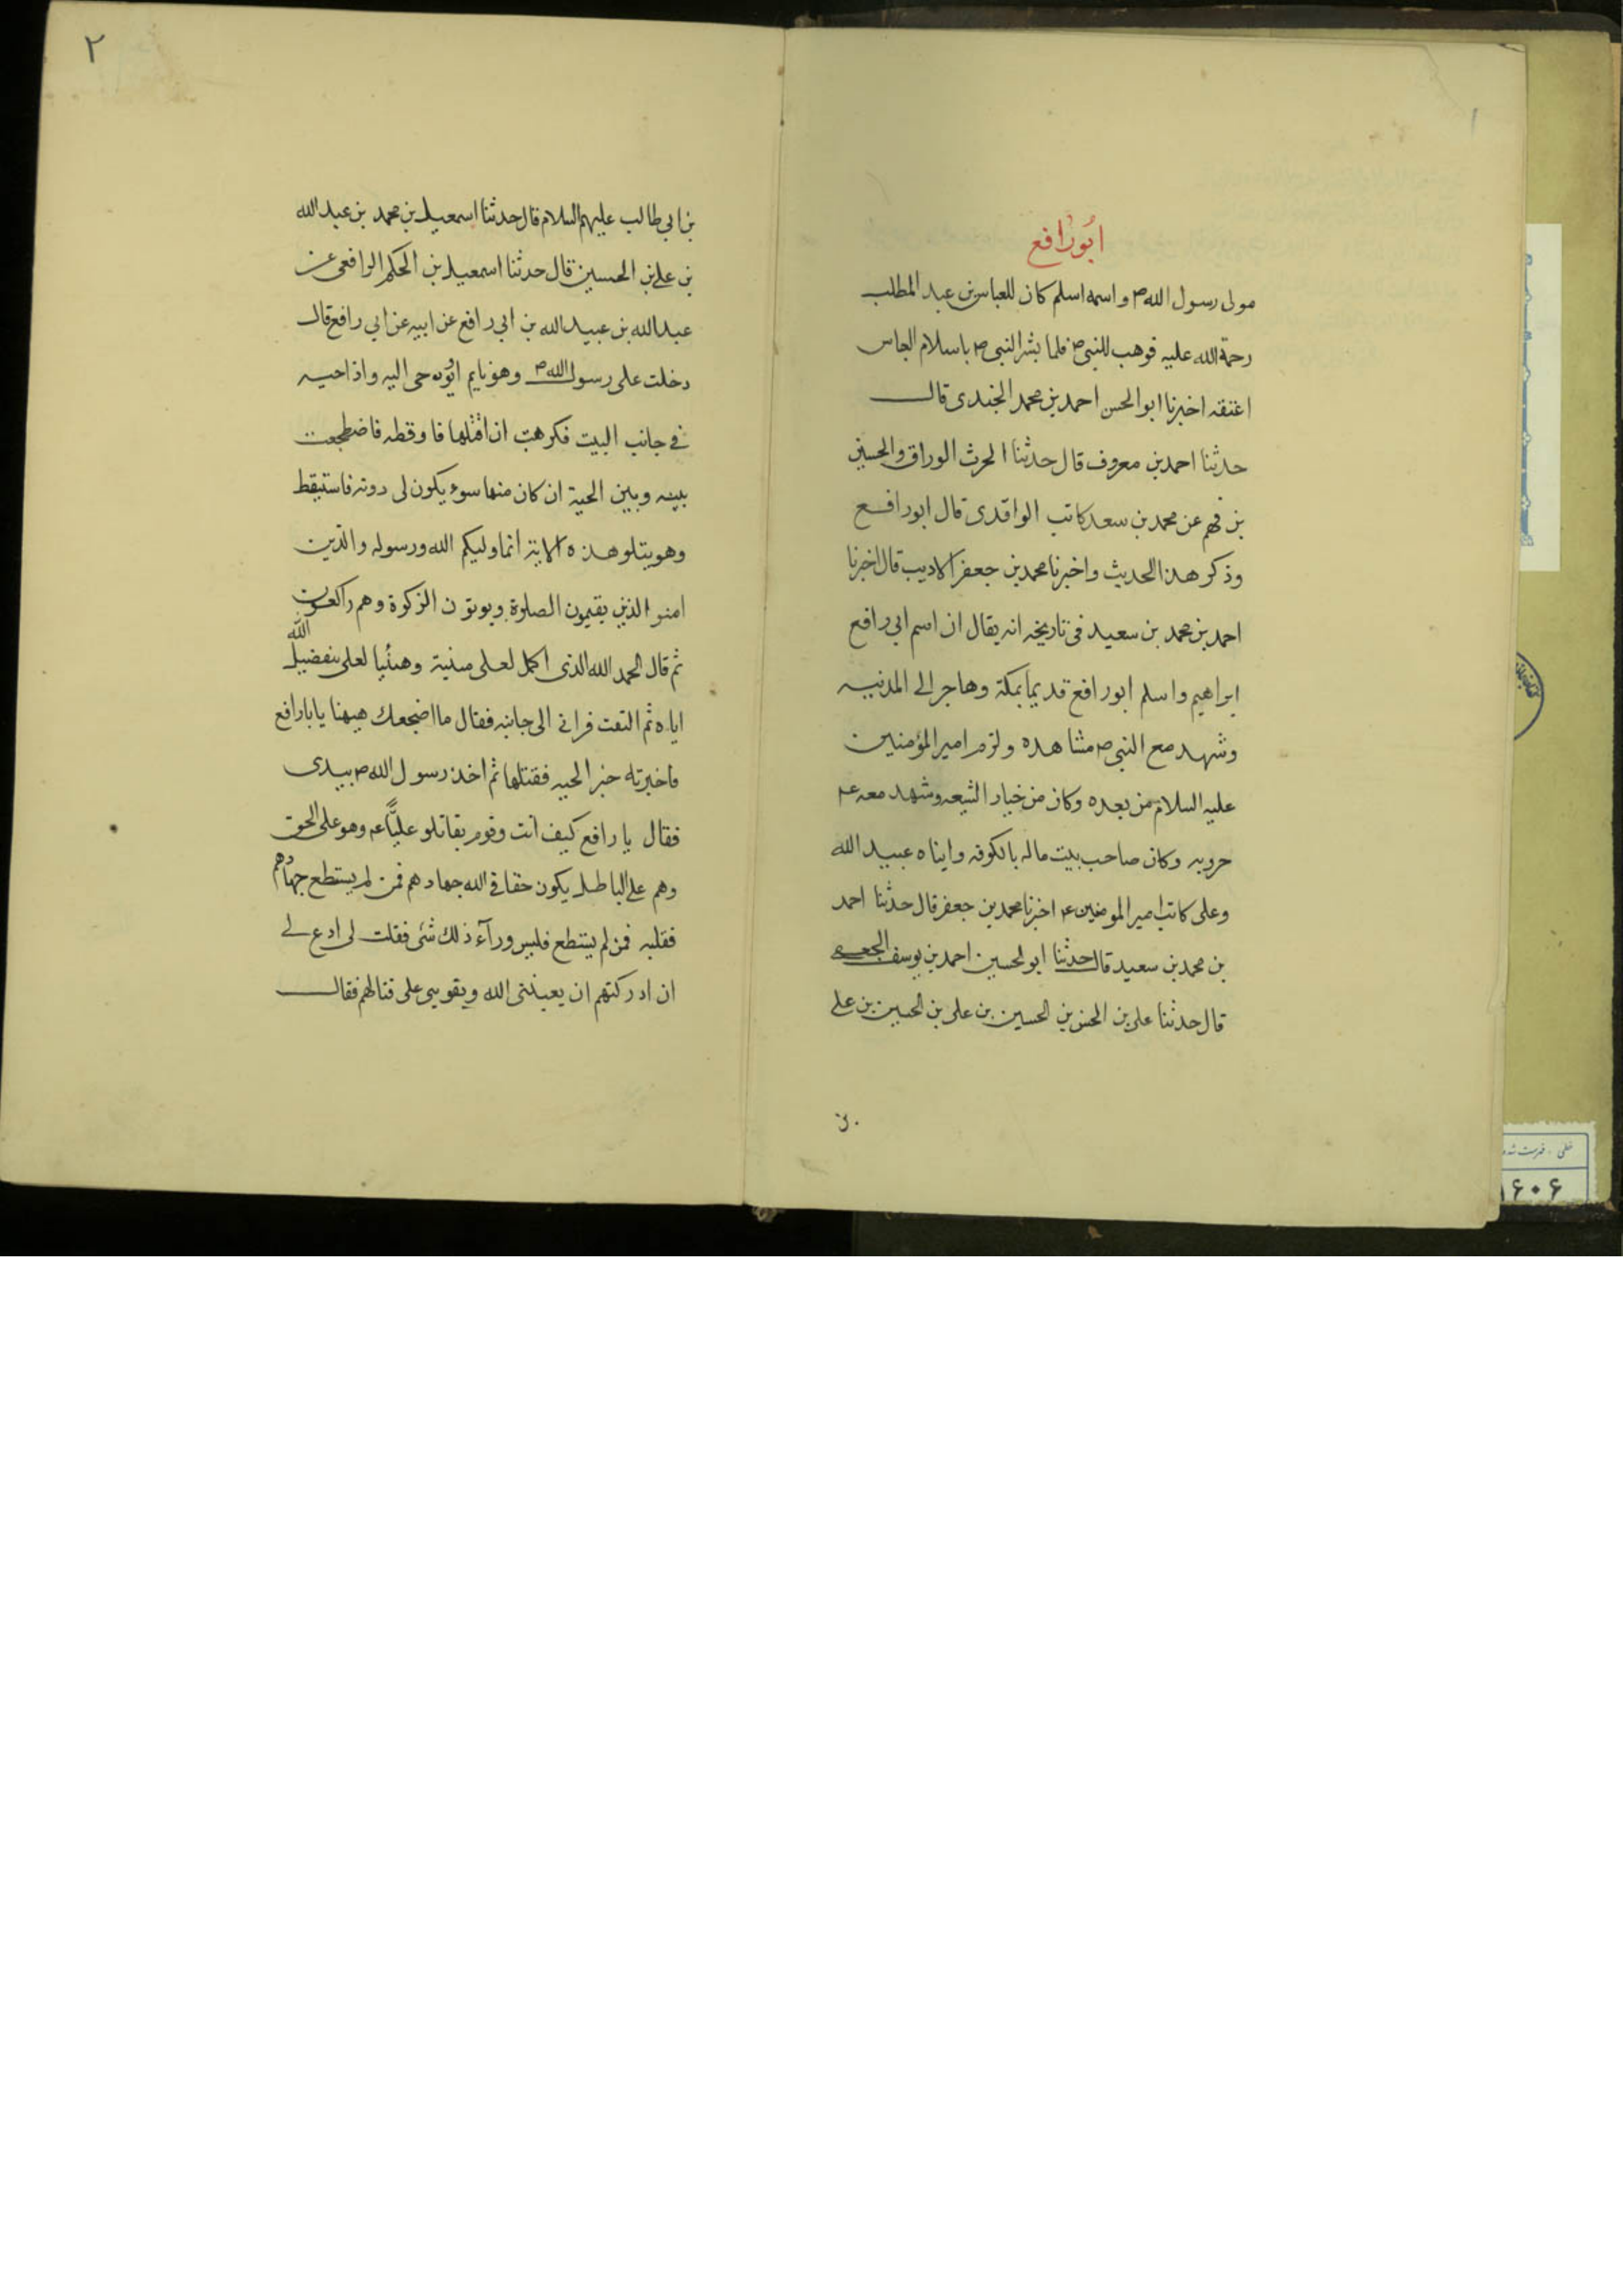 ابورافع
مولى رسول الله ص واسمه اسلم كان للعباس بن عبد المطلب
رحمة الله عليه فوهب للنبى ص فلما بشر النبى ص باسلام العباس
اعتقه اخبرنا ابو الحسن احمد بن محمد الجندى قال
حدثنا احمد بن معروف قال حدثنا الحرث الوراق والحسين
بن فهم عن محمد بن سعد كاتب الواقدى قال ابو رافع
وذكر هذا الحديث واخبرنا محمد بن جعفر الاديب قال اخبرنا
احمد بن محمد بن سعيد فى تاريخه انه يقال ان اسم ابى رافع
ابراهيم واسلم ابو رافع قديما بمكة وهاجر الى المدنيه
وشهد مع النبى ص مشاهده ولزم امير المؤمنين
عليه السلام من بعده وكان من خيار الشيعه وشهد معه ع
حروبه وكان صاحب بيت ماله بالكوفه وابناه عبيد الله
وعلى كاتبا امير المومنين ع اخبرنا محمد بن جعفر قال حدثنا احمد
بن محمد بن سعيد قال حدثنا ابو الحسين احمد بن يوسف الجعفى
قال حدثنا على بن الحسن بن الحسين بن على بن الحسين بن على
بن
٢
بن ابى طالب عليهم السلام قال حدثنا اسمعيل بن محمد بن عبد الله
بن على بن الحسين قال حدثنا اسمعيل بن الحكم الرافعى عن
عبد الله بن عبيد الله بن ابى رافع عن ابيه عن ابى رافع قال
دخلت على رسول الله ص وهو نايم او يوحى اليه واذا حيه
فى جانب البيت فكرهت ان اقتلها فاوقظه فاضطجعت
بينه وبين الحية ان كان منها سوء يكون لى دونه فاستيقظ
وهو يتلو هذه الاية انما وليكم الله ورسوله والذين
امنوا الذين يقيمون الصلوة ويوتون الزكوة وهم راكعون
ثم قال الحمد لله الذى اكمل لعلى منية وهنئيا لعلى بتفضيل الله
اياه ثم التفت فرانى الى جانبه فقال ما اضجعك هيهنا يابا رافع
فاخبرته خبر الحيه فقتلها ثم اخذ رسول الله ص بيدى
فقال يا رافع كيف انت وقوم يقاتلو عليّا ع وهو على الحق
وهم على الباطل يكون حقا فى الله جهادهم فمن لم يستطع جهادهم
فقلبه فمن لم يستطع فليس ورآء ذلك شئ فقلت لى ادع لى
ان ادركتهم ان يعيننى الله ويقوينى على قتالهم فقال
١
خطى . فهرست شده
١۶٠۶